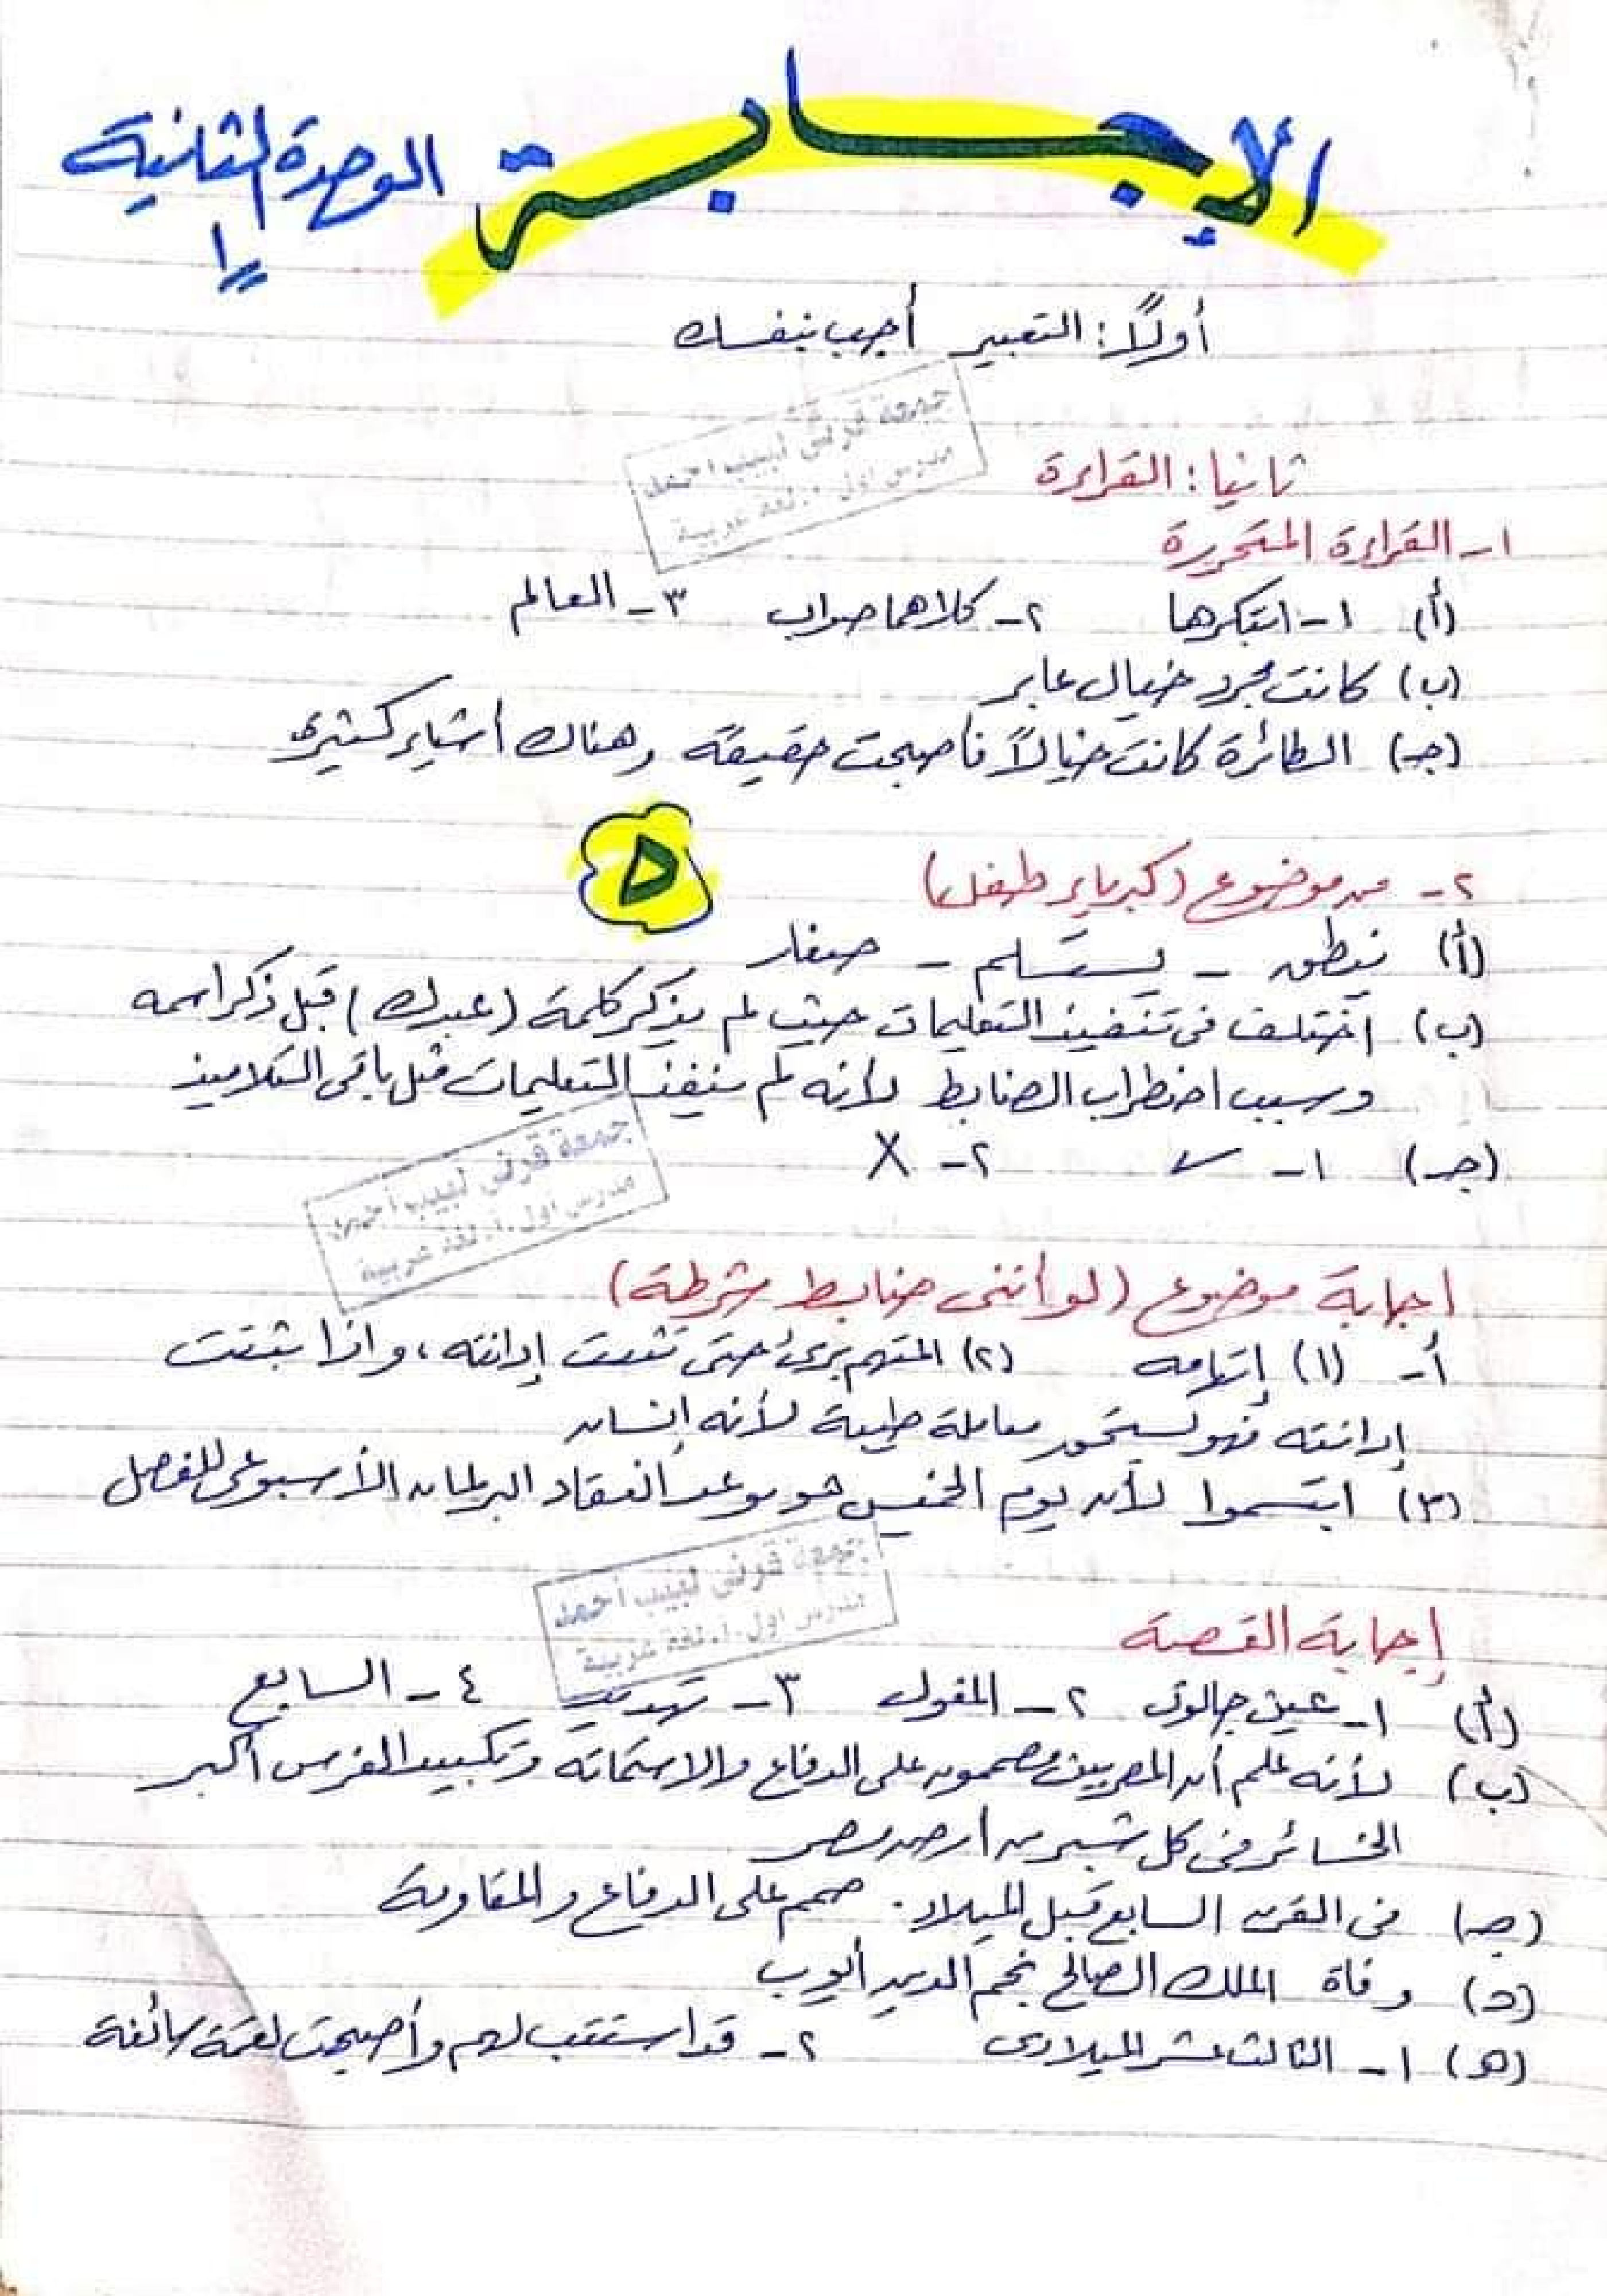 الإجابة
الوحدة الثانية
أولاً: التعبير أجب بنفسك
جمعة قرنى لبيب أحمد
مدرس أول أ. لغة عربية
ثانيا: القراءة
١- القراءة المتحررة
(أ) ١- ابتكرها ٢- كلاهما صواب ٣- العالم
(ب) كانت مجرد خيال عابر
(جـ) الطائرة كانت خيالاً فأصبحت حقيقة وهناك أشياء كثيرة
٥
٢- من موضوع (كبرياء طفل)
(أ) ينطق - يستسلم - صغار
(ب) اختلف فى تنفيذ التعليمات حيث لم يذكر كلمة (عبدك) قبل ذكر اسمه
وسبب اضطراب الضابط لأنه لم ينفذ التعليمات مثل باقى التلاميذ
(جـ) ١- ✓ ٢- X
جمعة قرنى لبيب أحمد
مدرس أول أ. لغة عربية
اجابة موضوع (لو أننى ضابط شرطة)
أ- (١) إتهامه (٢) المتهم برئ حتى تثبت إدانته، واذا ثبتت
إدانته فهو يستحق معاملة طيبة لأنه إنسان
(٣) ابتسموا لأن يوم الخميس هو موعد انعقاد البرلمان الأسبوعى للفصل
جمعة قرنى لبيب أحمد
مدرس أول أ. لغة عربية
إجابة القصة
(أ) ١- عين جالوت ٢- المغول ٣- تهديد ٤- السابع
(ب) لأنه علم أن المصريين مصممون على الدفاع والاستماتة وتكبيد الفرس أكبر
الخسائر فى كل شبر من أرض مصر
(جـ) فى القرن السابع قبل الميلاد. صمم على الدفاع والمقاومة
(د) وفاة الملك الصالح نجم الدين أيوب
(هـ) ١- الثالث عشر الميلادى ٢- قد استتب لهم وأصبحت لقمة سائغة